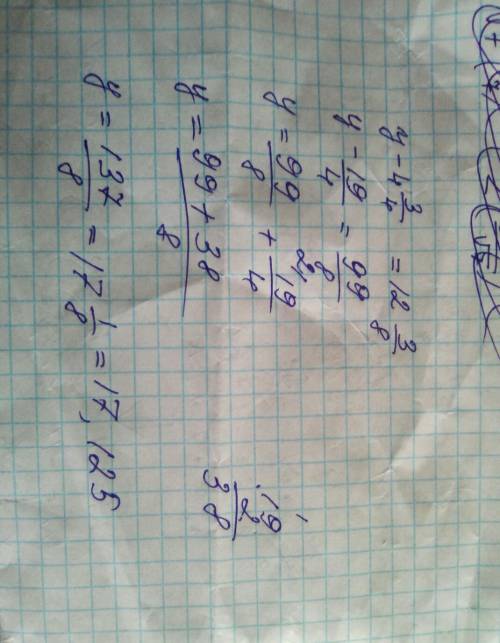 y - 4 3/4 = 12 3/8
y - 19/4 = 99/8
y = 99/8 + 19/4 2/
y = (99 + 38)/8
y = 137/8 = 17 1/8 = 17,125
1
19
2
38